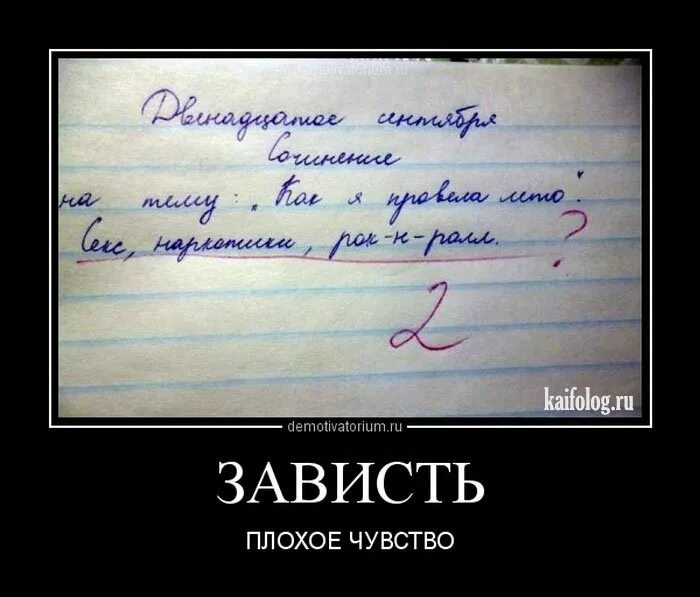 demotivatorium.ru
Двенадцатое сентября
Сочинение
на тему: „Как я провела лето".
Секс, наркотики, рок-н-ролл. ?
2
kaifolog.ru
demotivatorium.ru
ЗАВИСТЬ
ПЛОХОЕ ЧУВСТВО